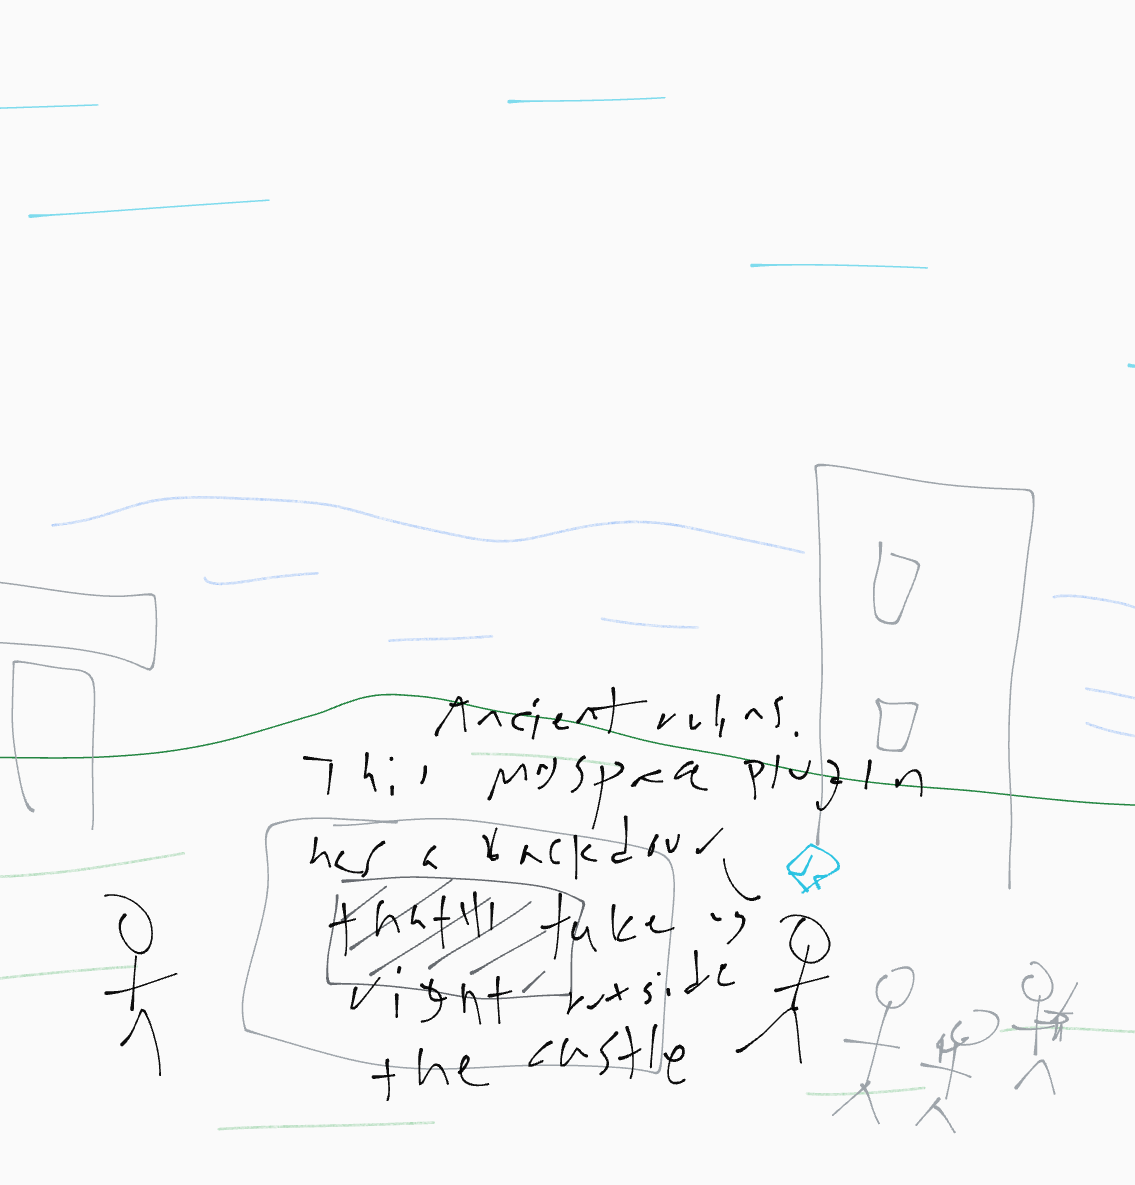 Ancient ruins.
This myspace plugin
has a backdoor
that'll take us
right outside
the castle